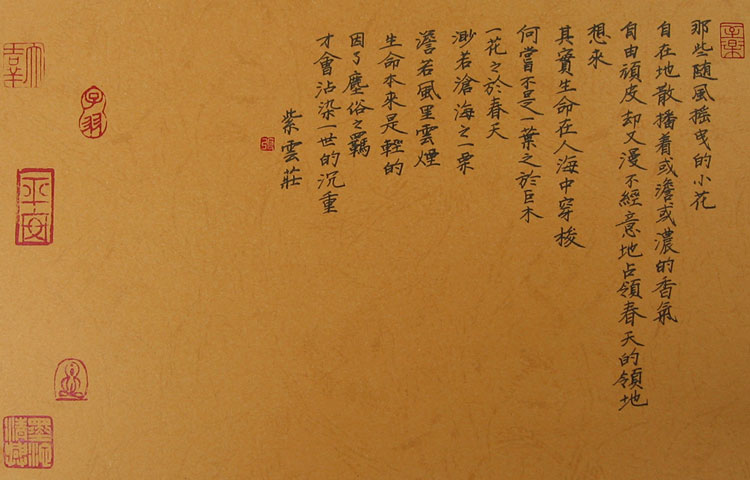 那些随風摇曳的小花
自在地散播着或澹或濃的香氣
自由頑皮却又漫不經意地占領春天的領地
想來
其實生命在人海中穿梭
何嘗不是一葉之於巨木
一花之於春天
渺若滄海之一粟
澹若風里雲煙
生命本來是輕的
因了塵俗之羈
才會沾染一世的沉重
紫雲莊
大吉羊
平安